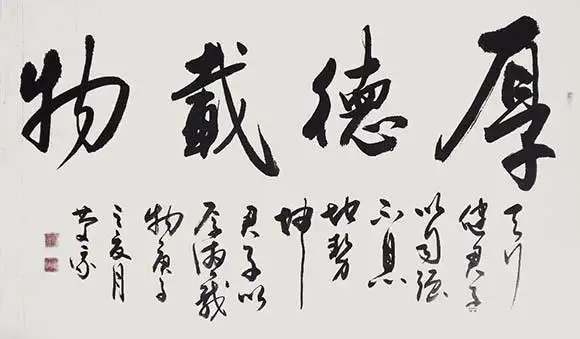 厚德載物
天行
健君子
以自强
不息
地勢
坤
君子以
厚德載
物庚子
之夏月